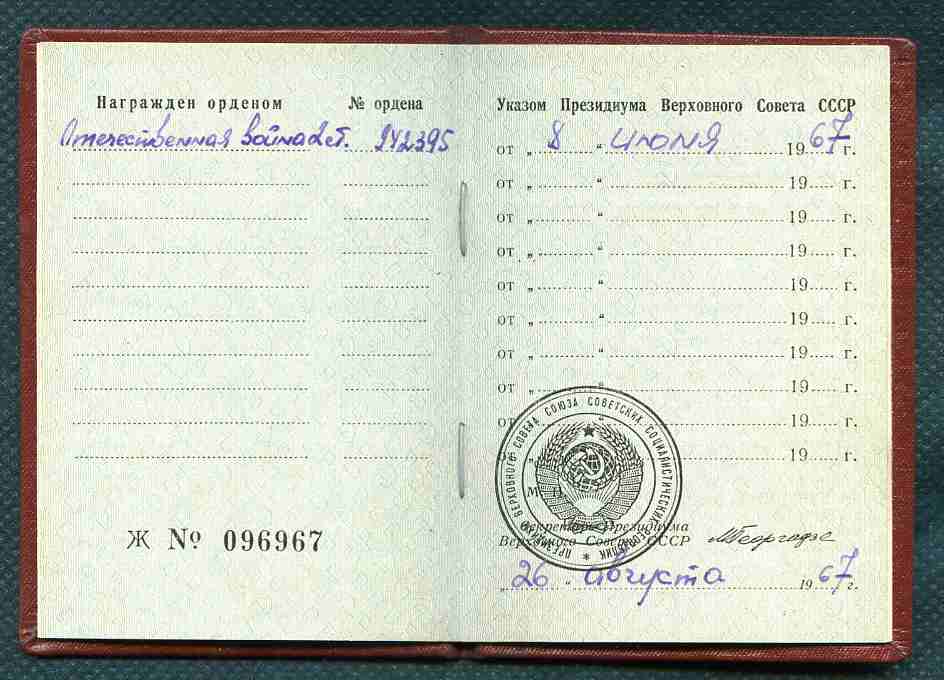 Награжден орденом № ордена
Отечественная война 2 ст. 242395
Ж № 096967
Указом Президиума Верховного Совета СССР
от „ 8 “ июля 1967 г.
от „ “ 19 г.
от „ “ 19 г.
от „ “ 19 г.
от „ “ 19 г.
от „ “ 19 г.
от „ “ 19 г.
от „ “ 19 г.
от „ “ 19 г.
от „ “ 19 г.
ПРЕЗИДИУМ ВЕРХОВНОГО СОВЕТА СОЮЗА СОВЕТСКИХ СОЦИАЛИСТИЧЕСКИХ РЕСПУБЛИК
М. П.
Секретарь Президиума
Верховного Совета СССР МГеоргадзе
„ 26 “ августа 1967 г.